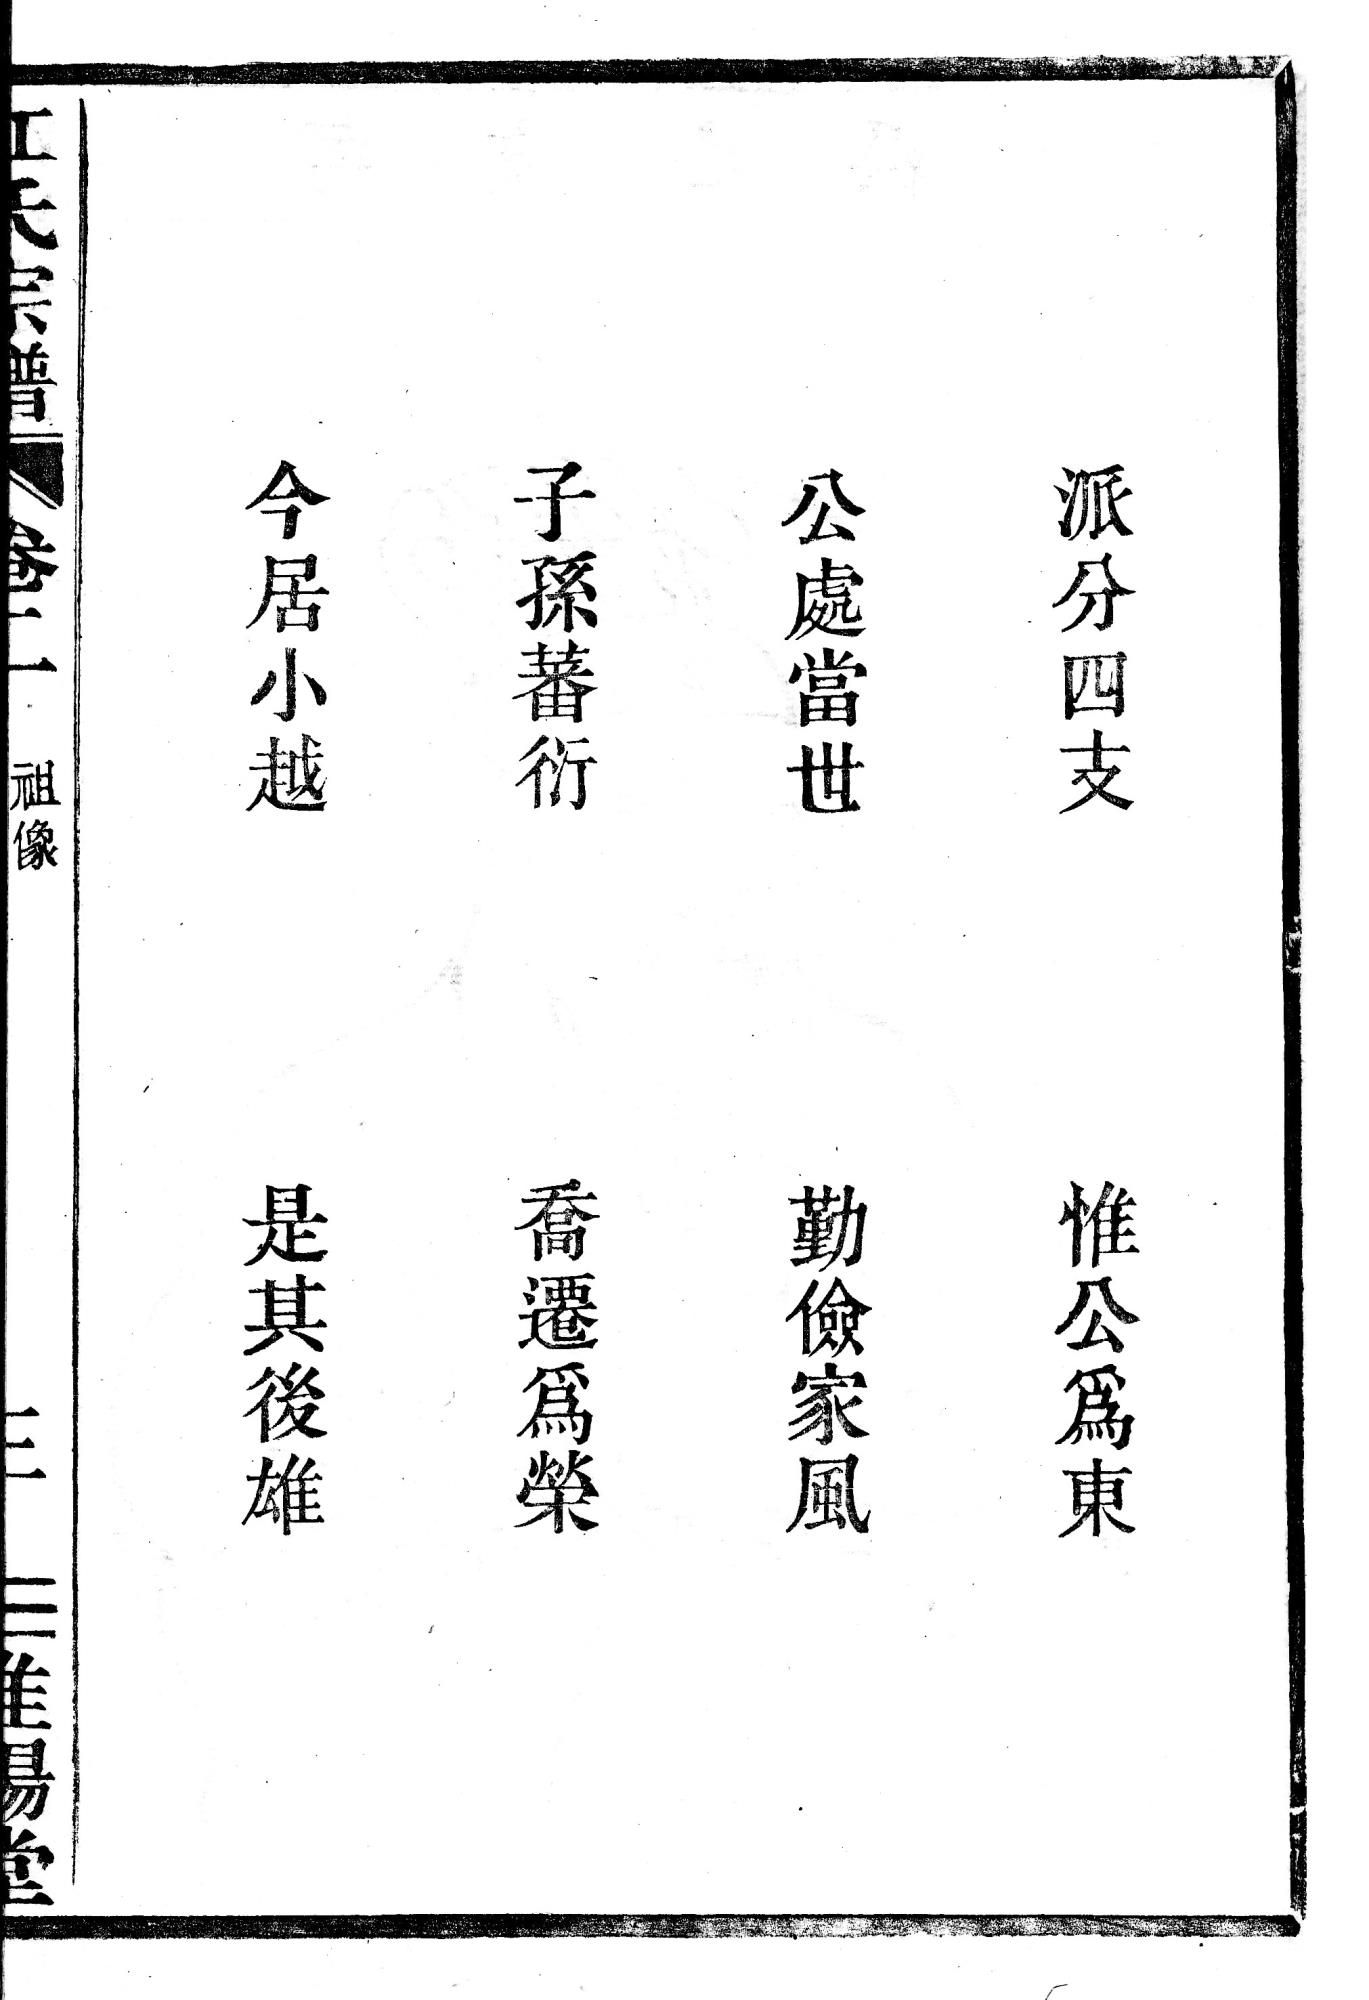 派分四支　惟公爲東
公處當世　勤儉家風
子孫蕃衍　喬遷爲榮
今居小越　是其後雄
江氏宗譜　卷一　祖像　三　淮陽堂